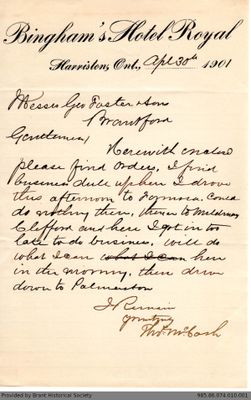 Bingham's Hotel Royal
Harriston, Ont., Apl 30th 1901
Messrs Geo Foster & Sons
Brantford
Gentlemen
Herewith enclosed
please find orders, I find
business dull up here I drove
this afternoon to Formosa. Could
do nothing there, then to Mildmay
Clifford and here I got in too
late to do business, will do
what I can what I can here
in the morning, then drive
down to Palmerston
I Remain
yours truly
Thos McCosh
Copyright © Brant Historical Society
985.66.074.010.061